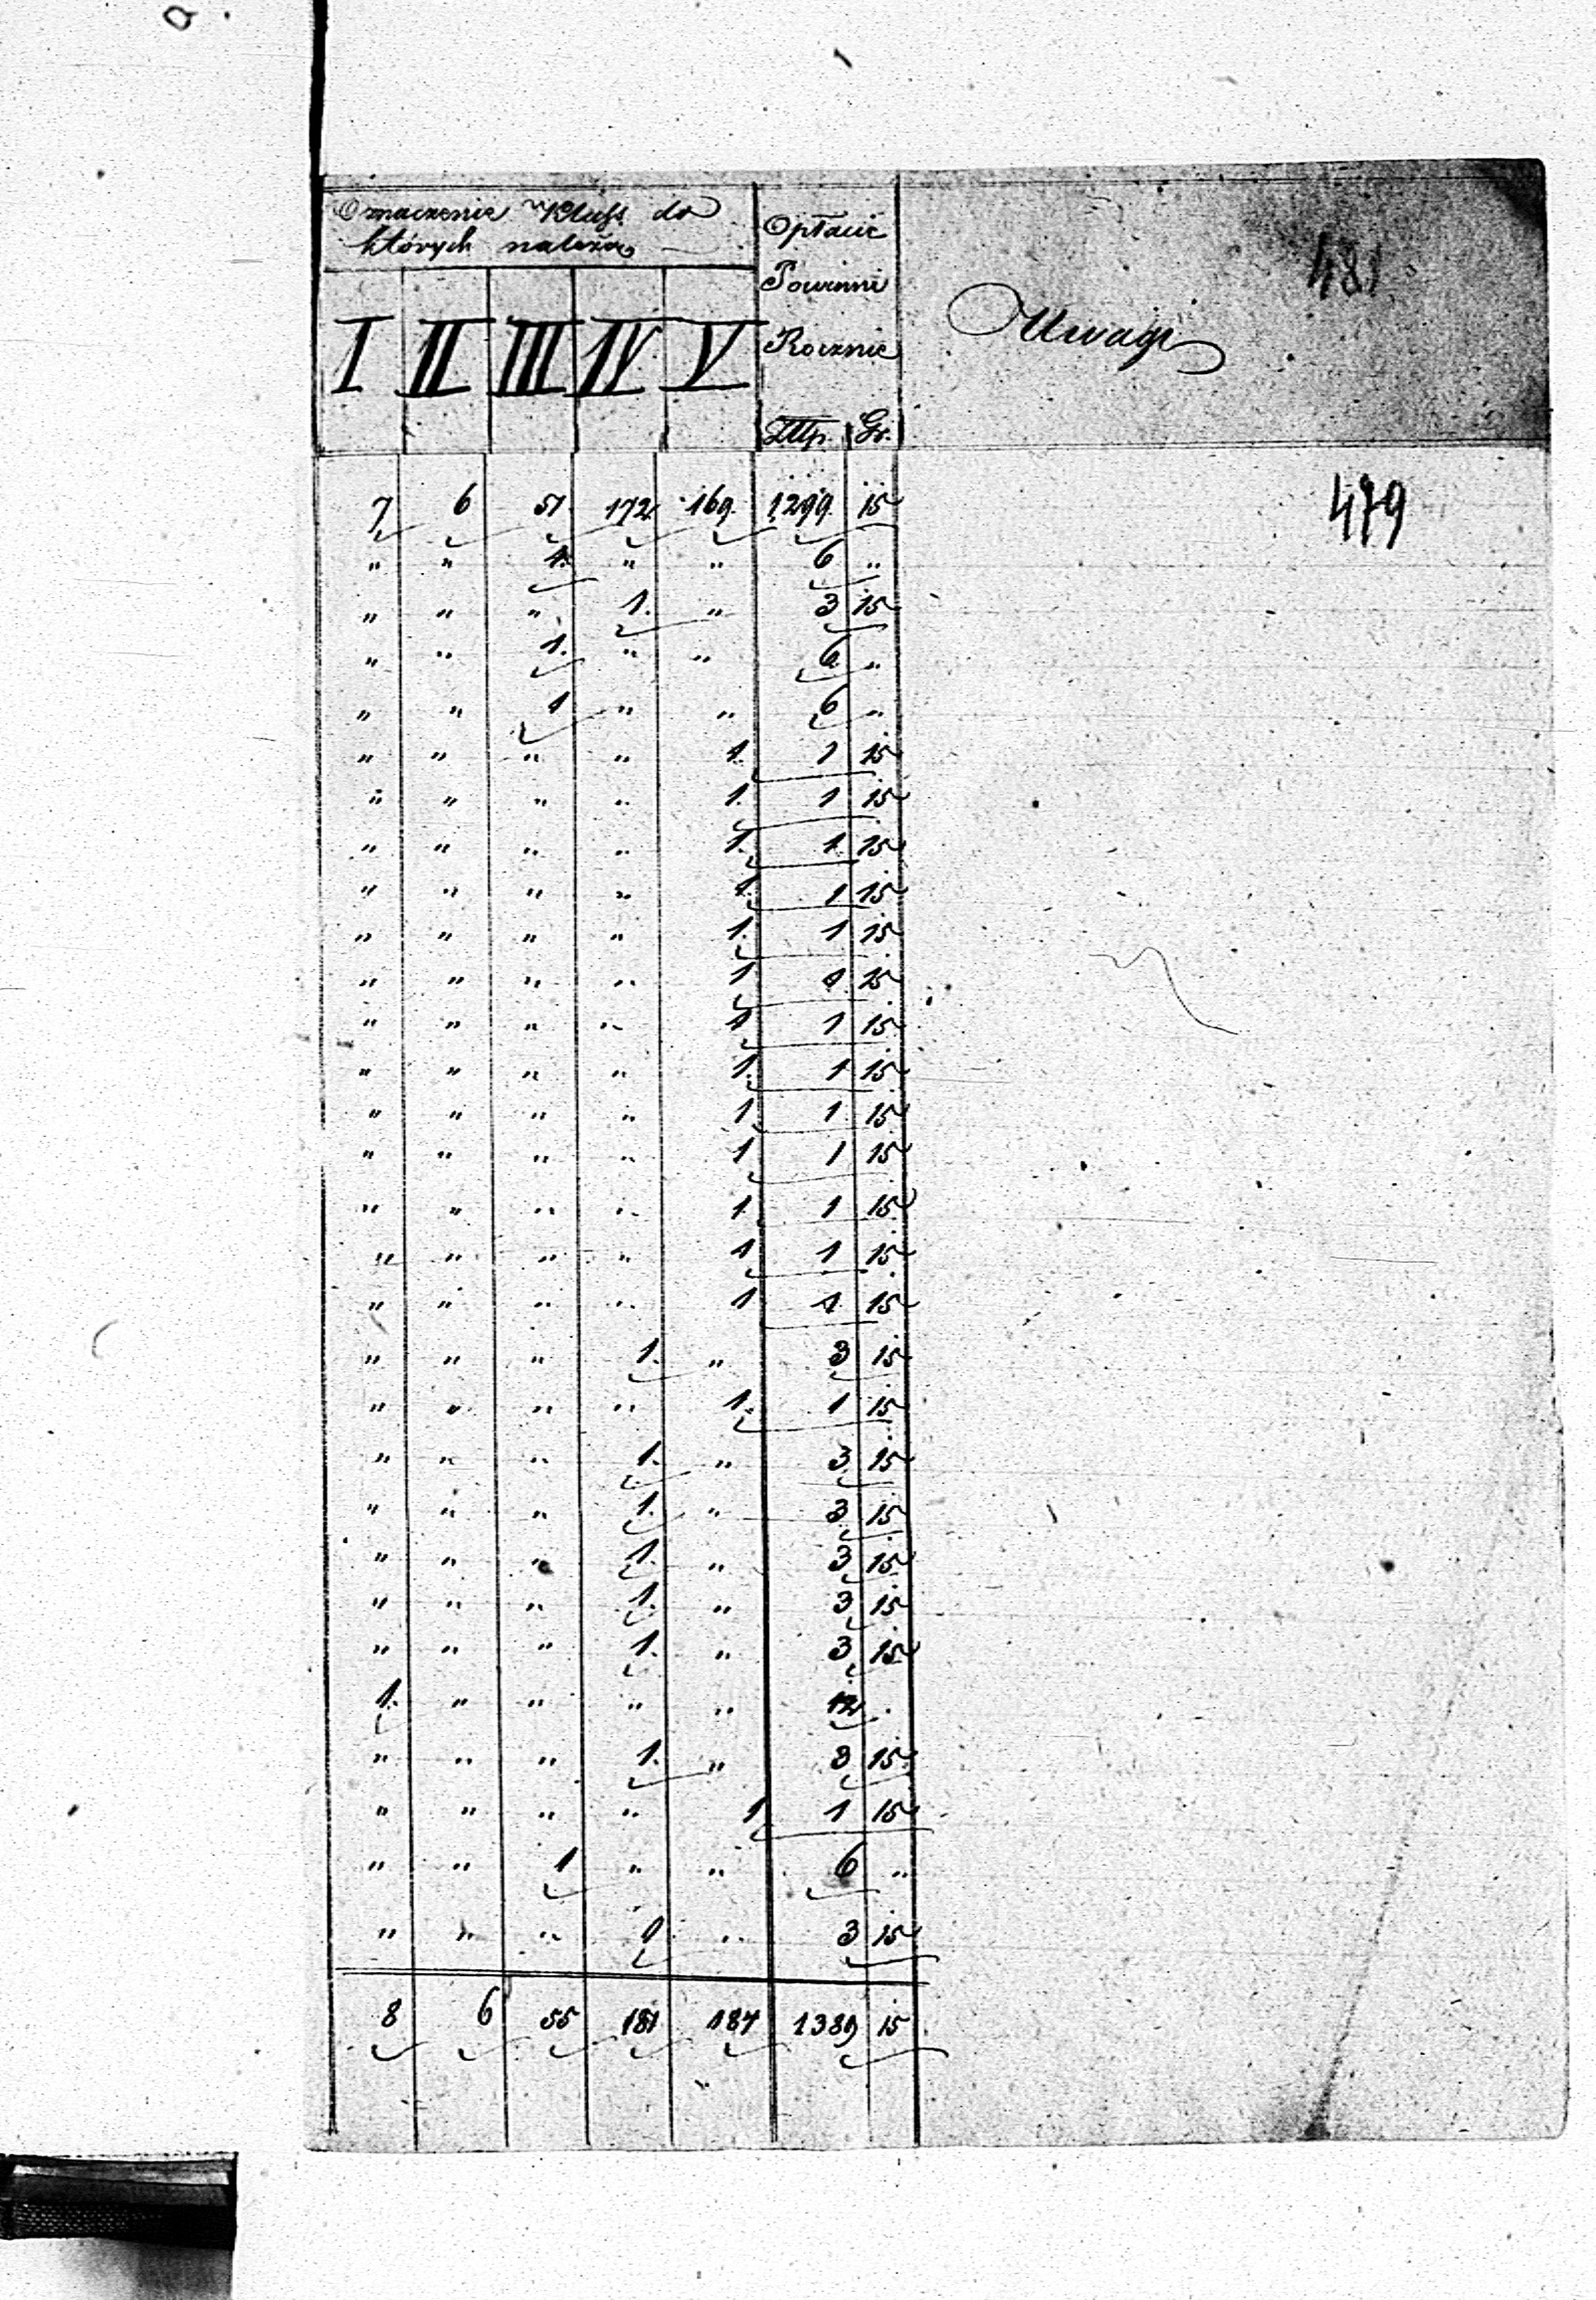 Oznaczenie Klass do
których należą
Opłacić
Powinni
Rocznie
Uwagi
481
I II III IV V
Złtp. Gr.
479
7 6 51 172 169 1299 15
" " 1. " " 6 "
" " " 1. " 3 15
" " 1. " " 6 "
" " 1 " " 6 "
" " " " 1. 1 15
" " " " 1. 1 15
" " " " 1. 1 15
" " " " 1. 1 15
" " " " 1. 1 15
" " " " 1 1 15
" " " " 1 1 15
" " " " 1. 1 15
" " " " 1 1 15
" " " " 1 1 15
" " " " 1. 1 15
" " " " 1 1 15
" " " " 1 1 15
" " " 1. " 3 15
" " " " 1. 1 15
" " " 1. " 3 15
" " " 1. " 3 15
" " " 1. " 3 15
" " " 1. " 3 15
" " " 1. " 3 15
1. " " " " 12 .
" " " 1. " 3 15
" " " " 1 1 15
" " 1 " " 6 "
" " " 1 " 3 15
8 6 55 181 184 1389 15